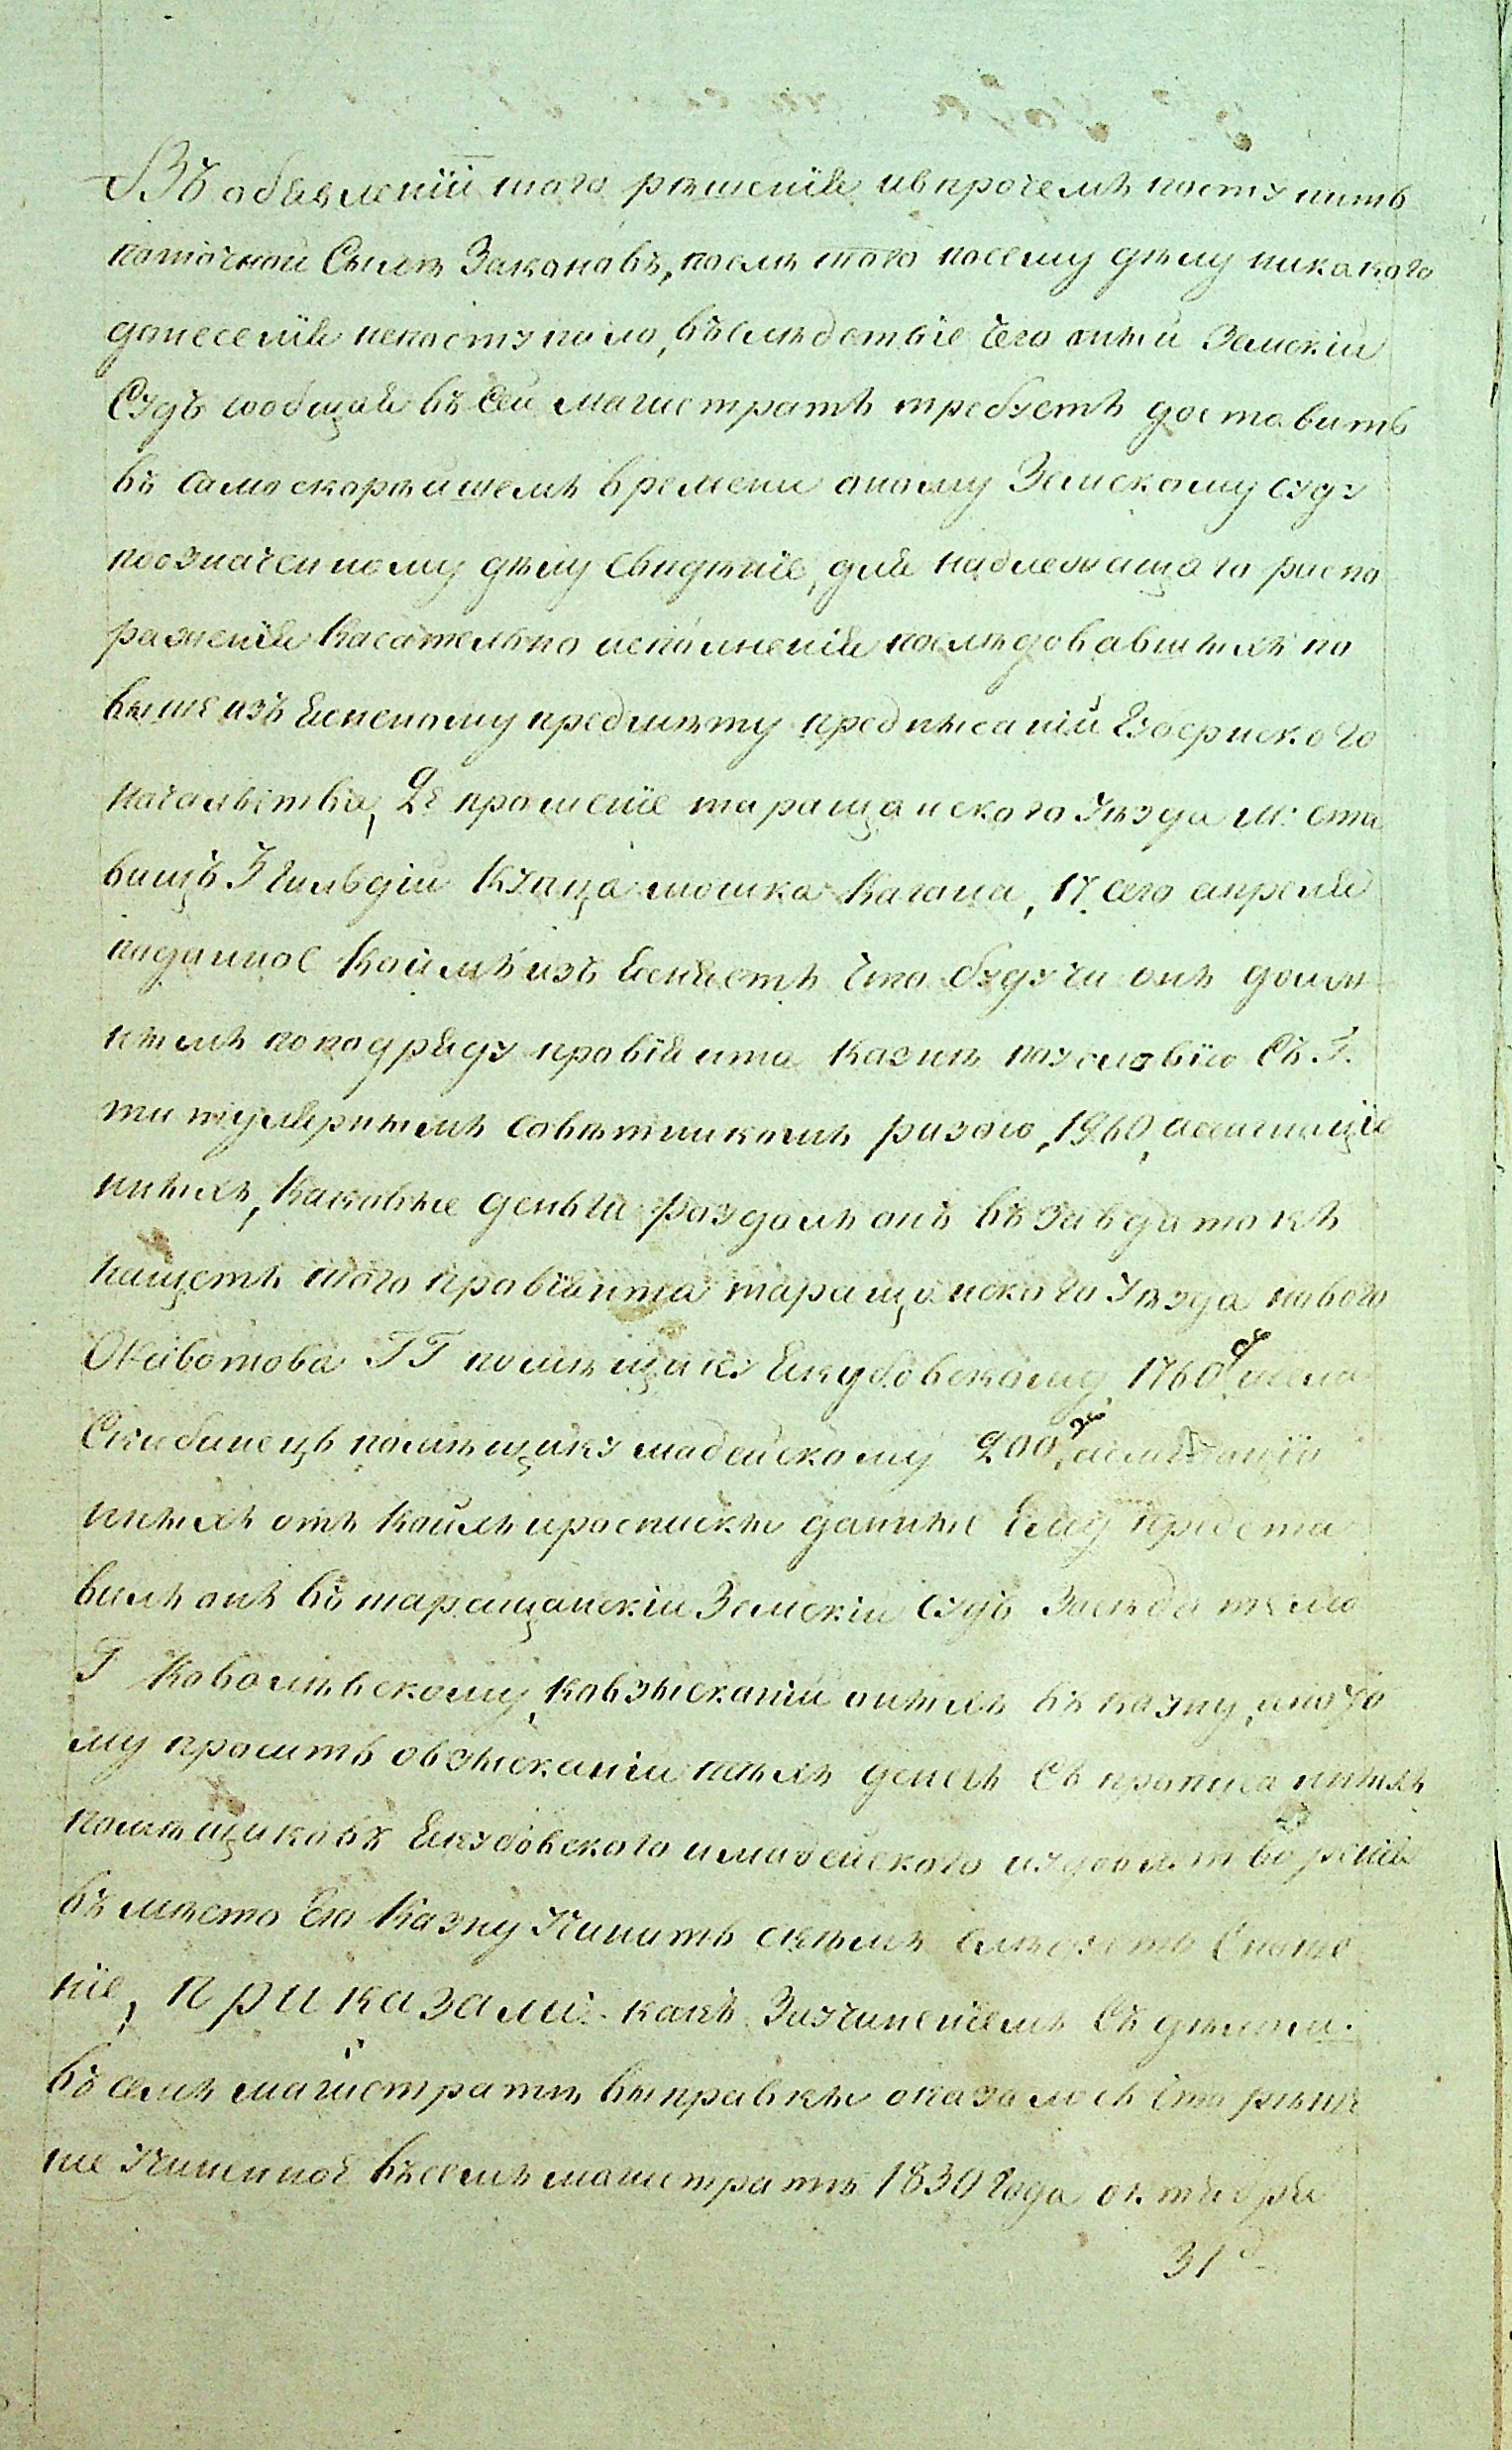 Въ объявленіи того рѣшенія ивпрочемъ поступить
поточной Силѣ Законовъ, послѣ того посему дѣлу никакого
донесенія непоступало, въслѣдствіе чего оный Земскій
Судъ сообщая въ Сей магистратъ требуетъ доставить
въ самоскорѣйшемъ времени оному Земскому суду
поозначенному дѣлу свидѣніе, для надлежащаго распо
раженія касательно исполненія послѣдовавшихъ по
вышеизъясненому предмѣту предписаній Губернского
началъства, 2е прошеніе таращанского уѣзда м: ста
вищъ 3 гильдіи купца мошка Кагана, 17, сего апреля
поданное коимъ изъясняетъ что будучи онъ долж
нымъ поподряду провіянта казнѣ поусловію Съ Г.
титулярнымъ совѣтникомъ 1960, ассигнаціе
ныхъ, каковые деньги роздалъ онъ въ завдатокъ
нащетъ того провіянта таращанского уѣзда нового
Животова ГГ помѣщику Якубовскому 1760 села
Скибинецъ помѣщику мадейскому 200, ассигнаціо
ныхъ отъ коихъ иросписки данные Ему предста
вилъ онъ въ таращанскій Земскій судъ Засѣдателю
Г Ковалѣвскому, ковзысканіи оныхъ въ казну, апото
му проситъ овзысканіи тѣхъ денегъ Съ прописанныхъ
помѣщиковъ Якубовского имадейского иудовлетворенія
въмѣсто Его Казну учинить съкѣмъ слѣдуетъ Сноше
ніе, приказали: какъ Заучиненіемъ Съ дѣлами
въ семъ магистратѣ выправки оказалось Что рѣше
ніе учиненное въсемъ магистратѣ 1830 года октября
31